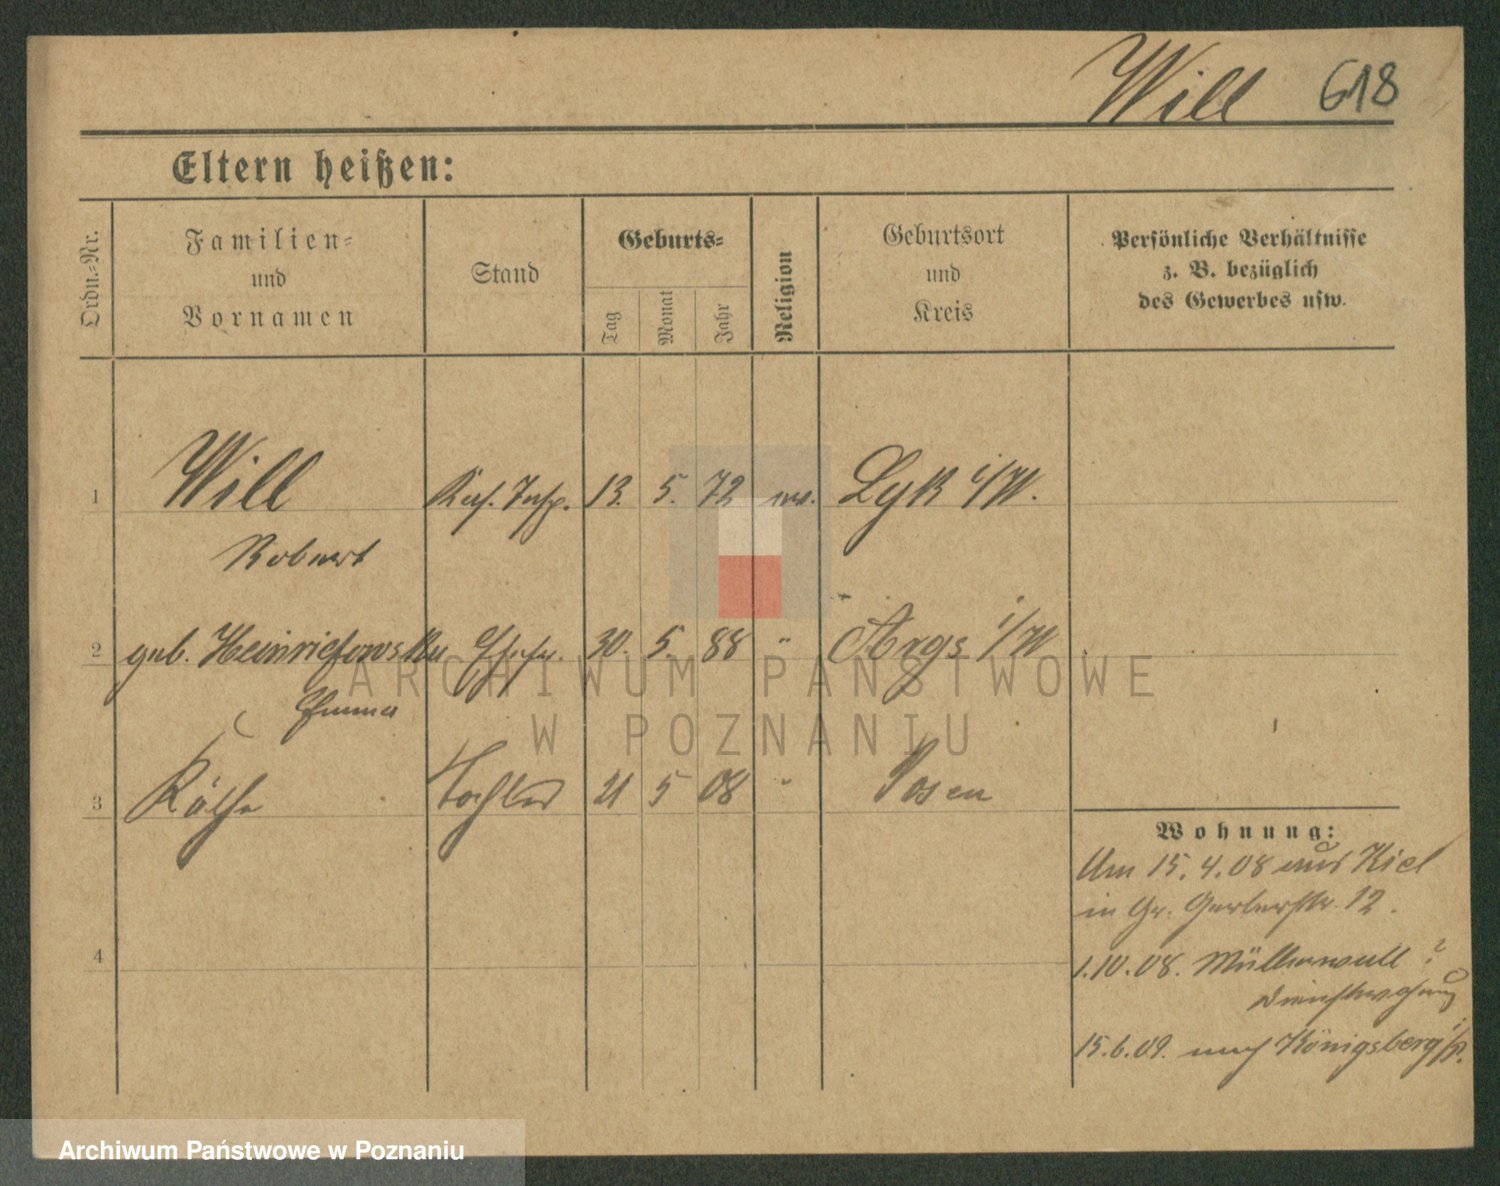 Will 618
Eltern heißen:
Ordn.-Nr.
Familien-
und
Vornamen
Stand
Geburts-
Tag
Monat
Jahr
Religion
Geburtsort
und
Kreis
Persönliche Verhältnisse
z. B. bezüglich
des Gewerbes usw.
1 Will Insp. 13. 5. 72 Lyk i/W.
Robert
2 geb. Ehefr. 30. 5. 88 " Arys i/W
Emma
3 Käthe Tochter 21 5 08 " Posen
4
Wohnung:
Am 15.4.08 aus Kiel
in Gr. Gerberstr. 12.
1.10.08. Müllerwall ?
Dienstwohnung
15.6.09. nach Königsberg i/P.
ARCHIWUM PAŃSTWOWE
W POZNANIU
Archiwum Państwowe w Poznaniu